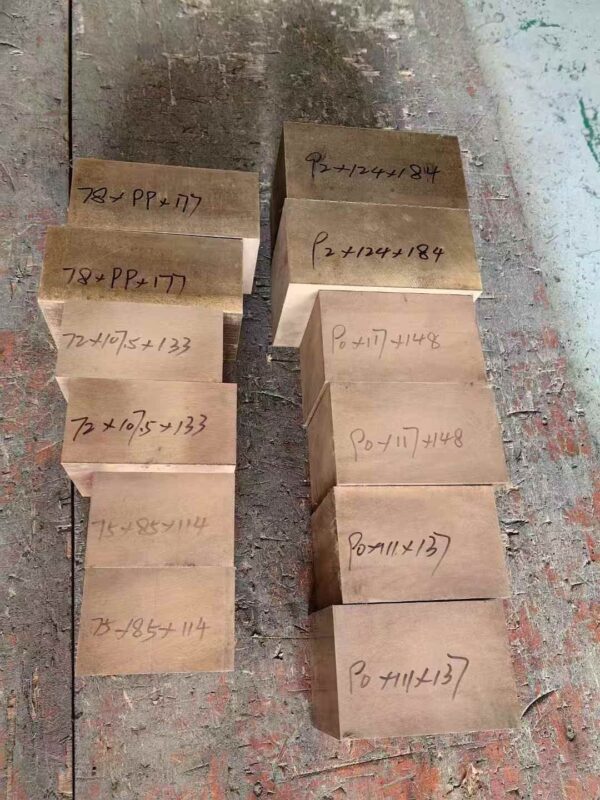 78×99×177
78×99×177
72×107.5×133
72×107.5×133
75×85×114
75×85×114
92×124×184
92×124×184
90×117×148
90×117×148
90×111×137
90×111×137